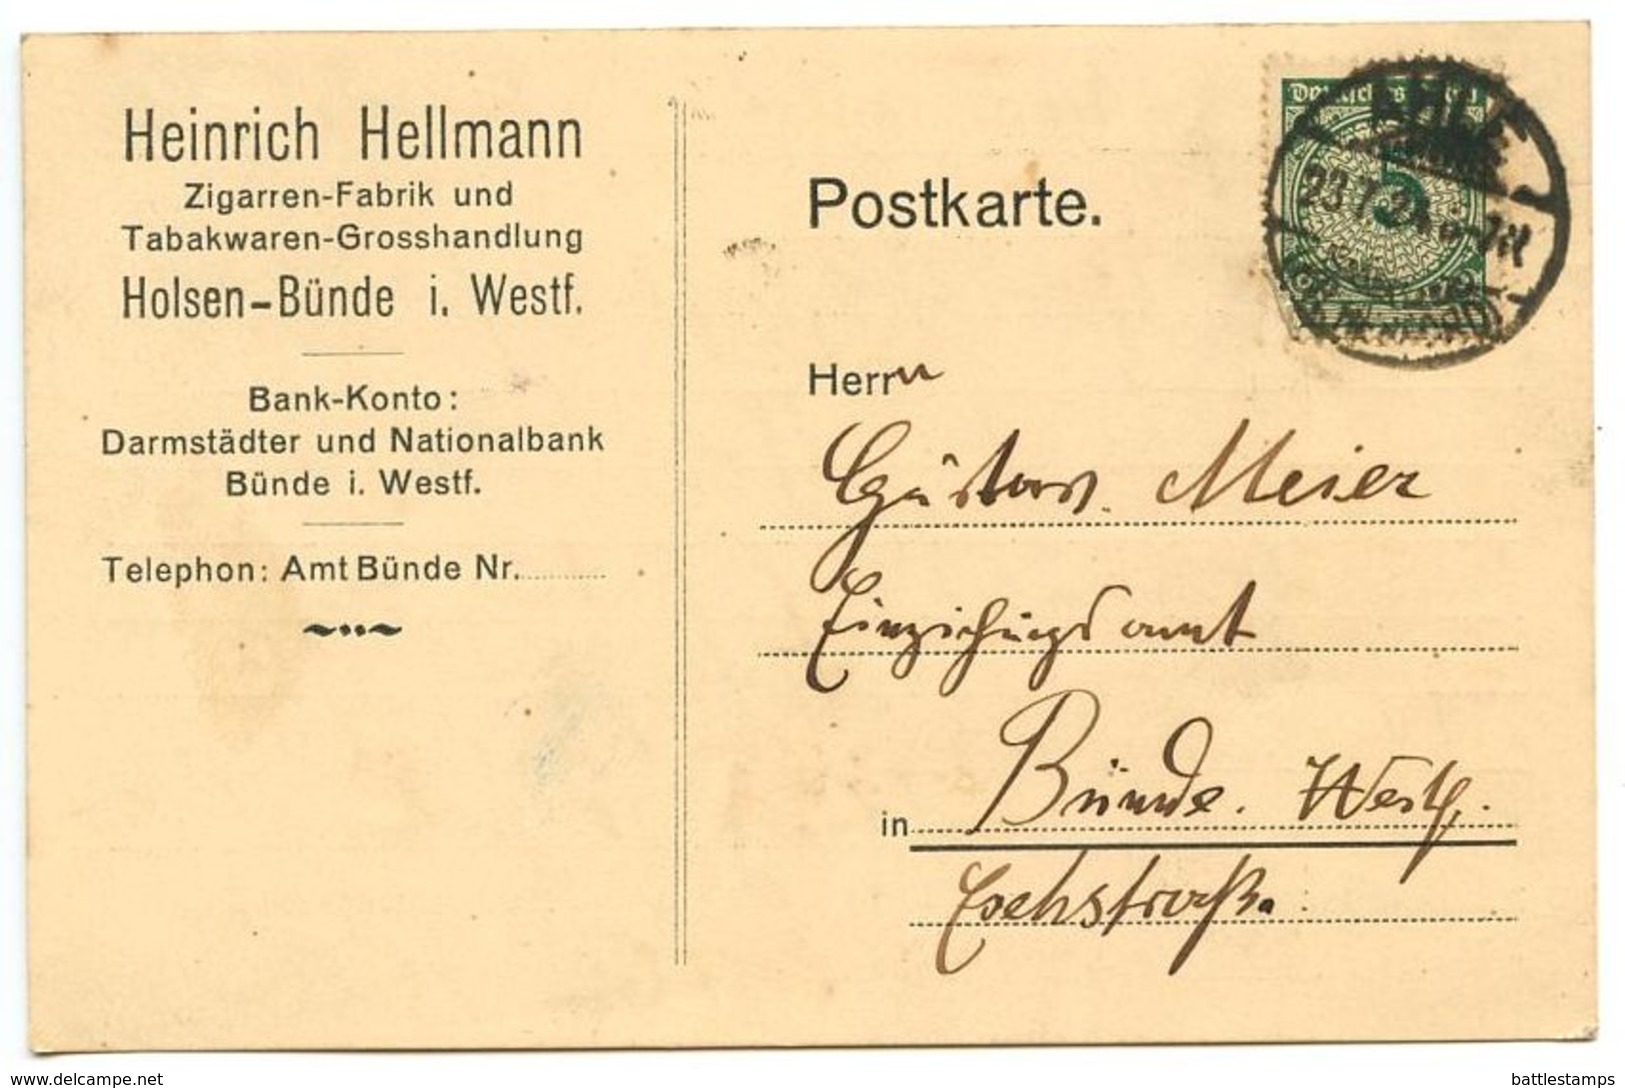 Heinrich Hellmann
Zigarren-Fabrik und
Tabakwaren-Grosshandlung
Holsen-Bünde i. Westf.
Bank-Konto:
Darmstädter und Nationalbank
Bünde i. Westf.
Telephon: Amt Bünde Nr.
Deutsches Reich
5
AHLE
23.7.24
(KR. HERFORD)
Postkarte.
Herrn
Gustav Meier
Einziehungsamt
in Bünde. Westf.
Eschstraße.
delcampe.net
battlestamps